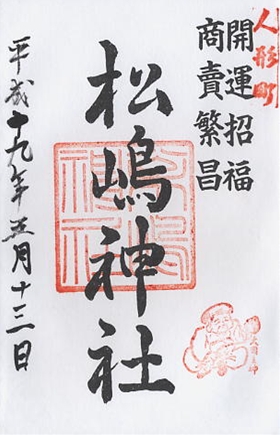 人形町
開運招福
商賣繁昌
松嶋神社
平成十九年五月十三日